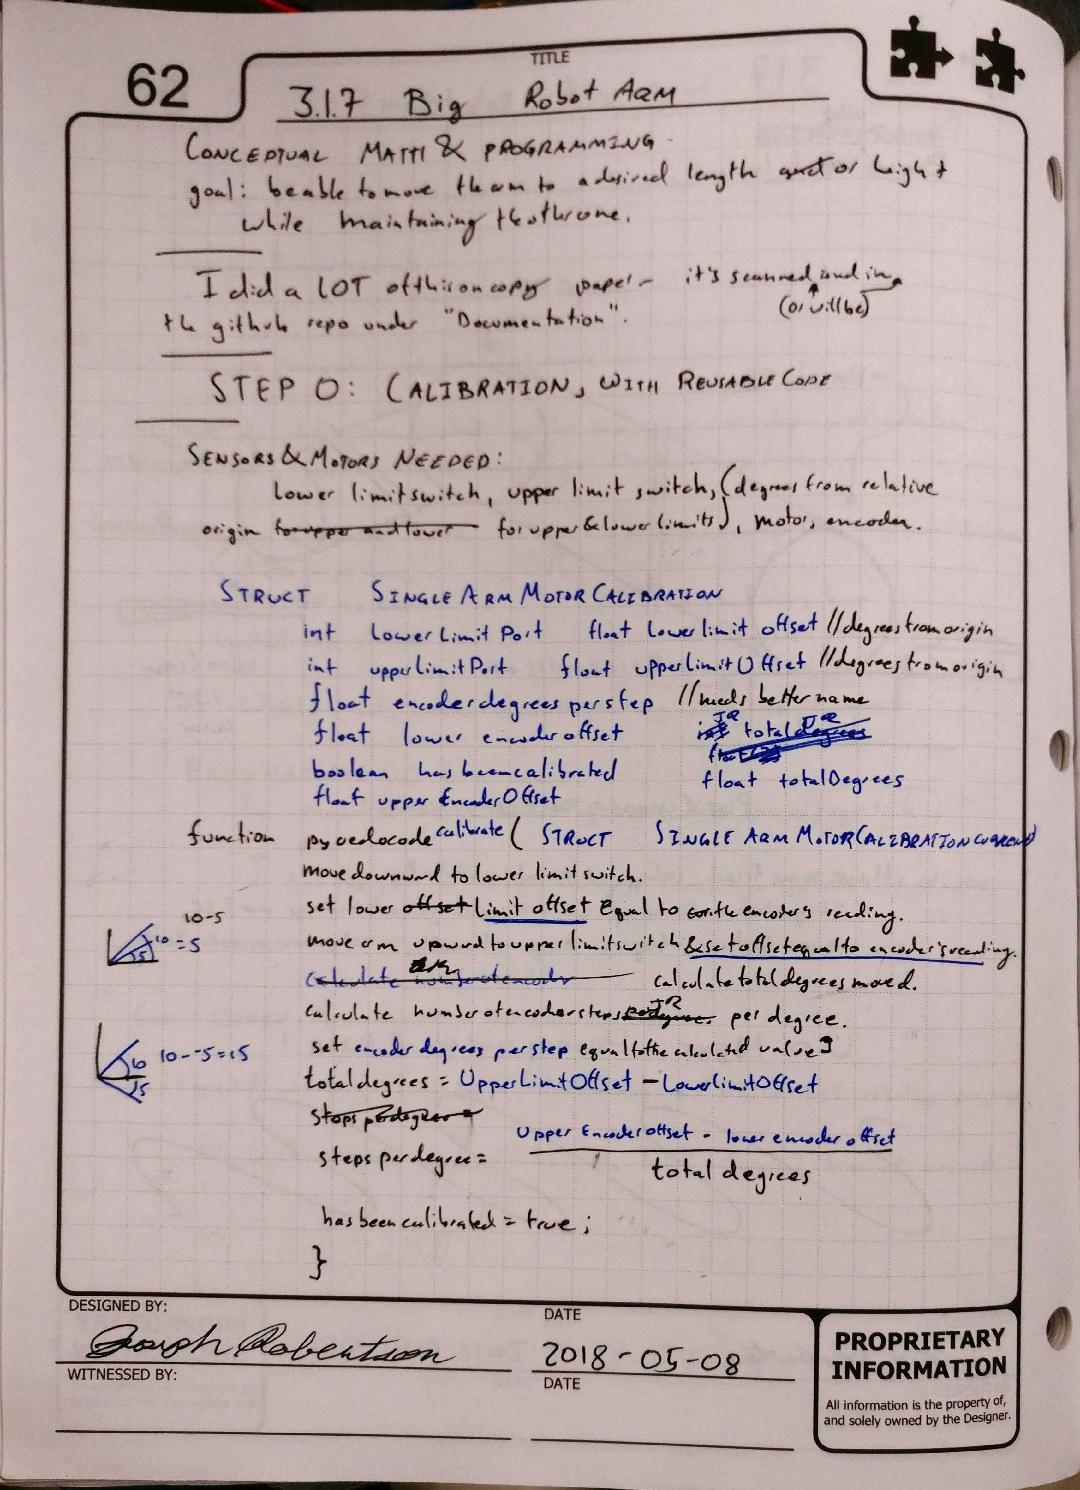 62
TITLE
3.1.7 Big Robot Arm
CONCEPTUAL MATH & PROGRAMMING
goal: be able to move the arm to a desired length and or height
while maintaining the other one.
I did a LOT of this on copy paper - it's scanned and in
(or will be)
the github repo under "Documentation".
STEP 0: CALIBRATION, WITH REUSABLE CODE
SENSORS & MOTORS NEEDED:
Lower limit switch, upper limit switch, (degrees from relative
origin for upper and lower for upper & lower limits), motor, encoder.
STRUCT SINGLE ARM MOTOR CALIBRATION
int Lower Limit Port float lower limit offset //degrees from origin
int upper Limit Port float upper limit Offset //degrees from origin
float encoder degrees per step //needs better name
float lower encoder offset int total degrees
JR JR
float
boolean has been calibrated float total Degrees
float upper Encoder Offset
function calibrate ( STRUCT SINGLE ARM MOTOR CALIBRATION current)
move downward to lower limit switch.
set lower offset limit offset equal to the encoder's reading.
10-5
10 = 5
5
move arm upward to upper limit switch & set offset equal to encoder's reading.
calculate number of encoder calculate total degrees moved.
calculate number of encoder steps JR per degree.
10 10--5=15
5
set encoder degrees per step equal to the calculated value
total degrees = Upper Limit Offset - Lower Limit Offset
steps per degree =
steps per degree = upper Encoder offset - lower encoder offset
total degrees
has been calibrated = true;
}
DESIGNED BY:
Joseph Robertson
DATE
2018-05-08
WITNESSED BY:
DATE
PROPRIETARY
INFORMATION
All information is the property of,
and solely owned by the Designer.